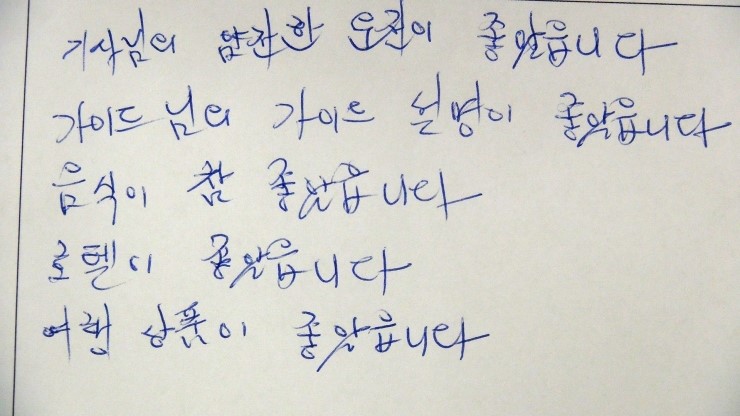 기사님의 얌잔한 운전이 좋았읍니다
가이드님의 가이드 설명이 좋았읍니다
음식이 참 좋았읍니다
호텔이 좋았읍니다
여행 상품이 좋았읍니다